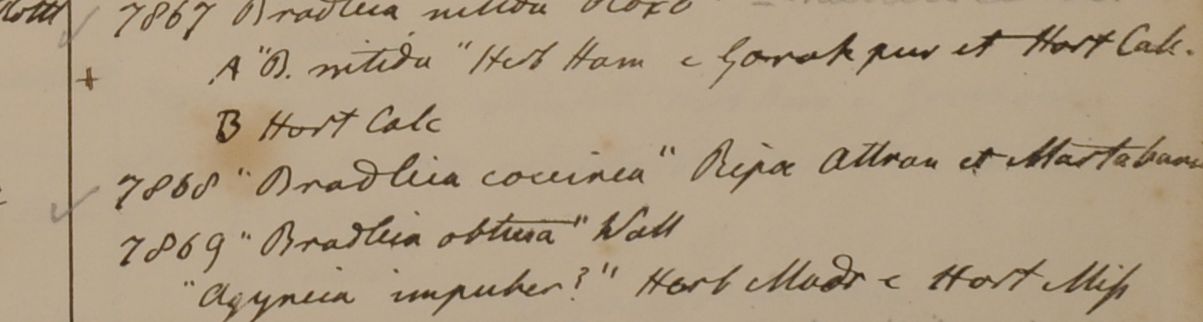 7867 Bradleia nitida Roxb
+ A "B. nitida" Herb Ham e Gorakpur et Hort Calc.
B Hort Calc
7868 "Bradleia coccinea" Ripa Attran et Martaban
7869 "Bradleia obtusa" Wall
"Agyneia impuber?" Herb Madr e Hort Miss